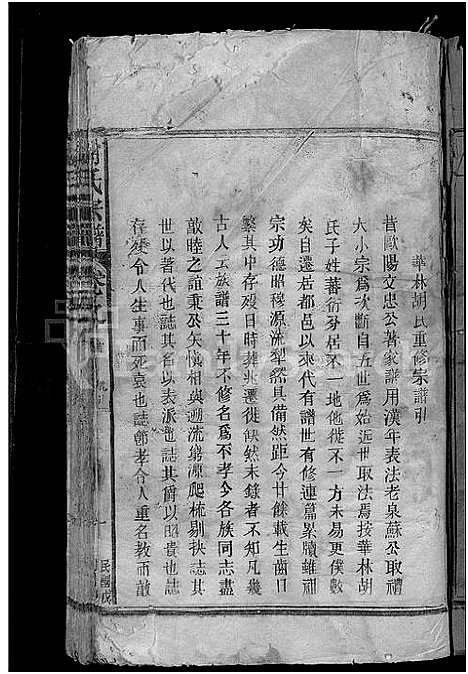 華林胡氏重修宗譜引
昔歐陽文忠公著家譜用漢年表法老泉蘇公取禮
大小宗爲次斷自五世爲始近世取法焉按華林胡
氏子姓蕃衍分居不一地他徙不一方未易更僕數
矣自遷居都邑以來代有譜世有修連篇累牘雖祖
宗功德昭穆源流犁然具備然距今廿餘載生齒日
繁其中存歿日時葬兆遷徙缺然未錄者不知凡幾
古人云族譜三十年不修名爲不孝今各族同志盡
敵睦之誼秉公矢愼相與遡流窮源爬梳剔抉志其
世以著代也誌其名以表派也誌其爵以昭貴也誌
存使令人生事而死哀也誌節孝令人重名教而敵
胡氏宗譜
卷
民國戊